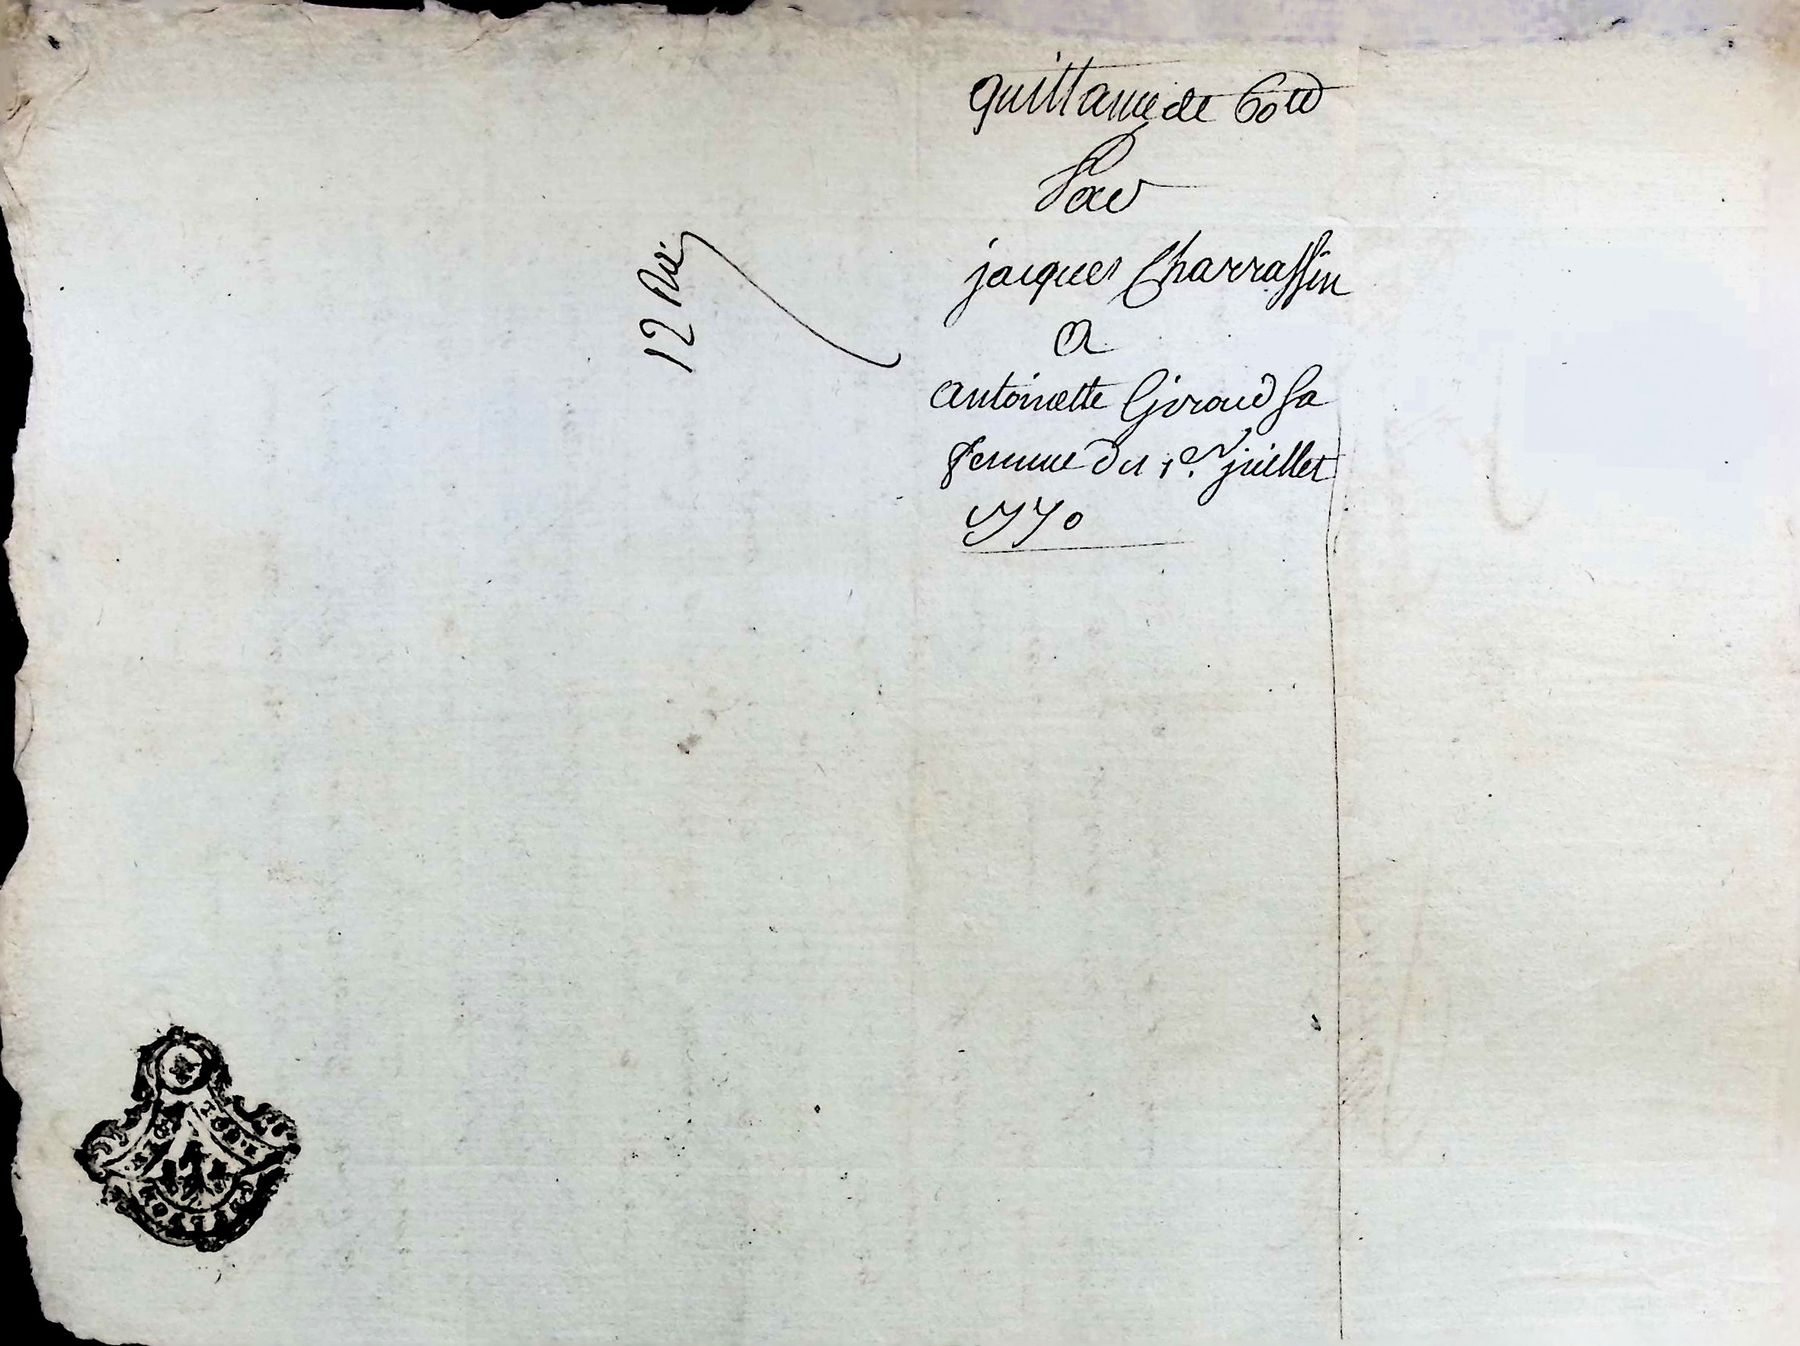 quittance de 60tt
par
jacques Charrassin
a
antoinette Giroud sa
femme du 1er juillet
1770
12